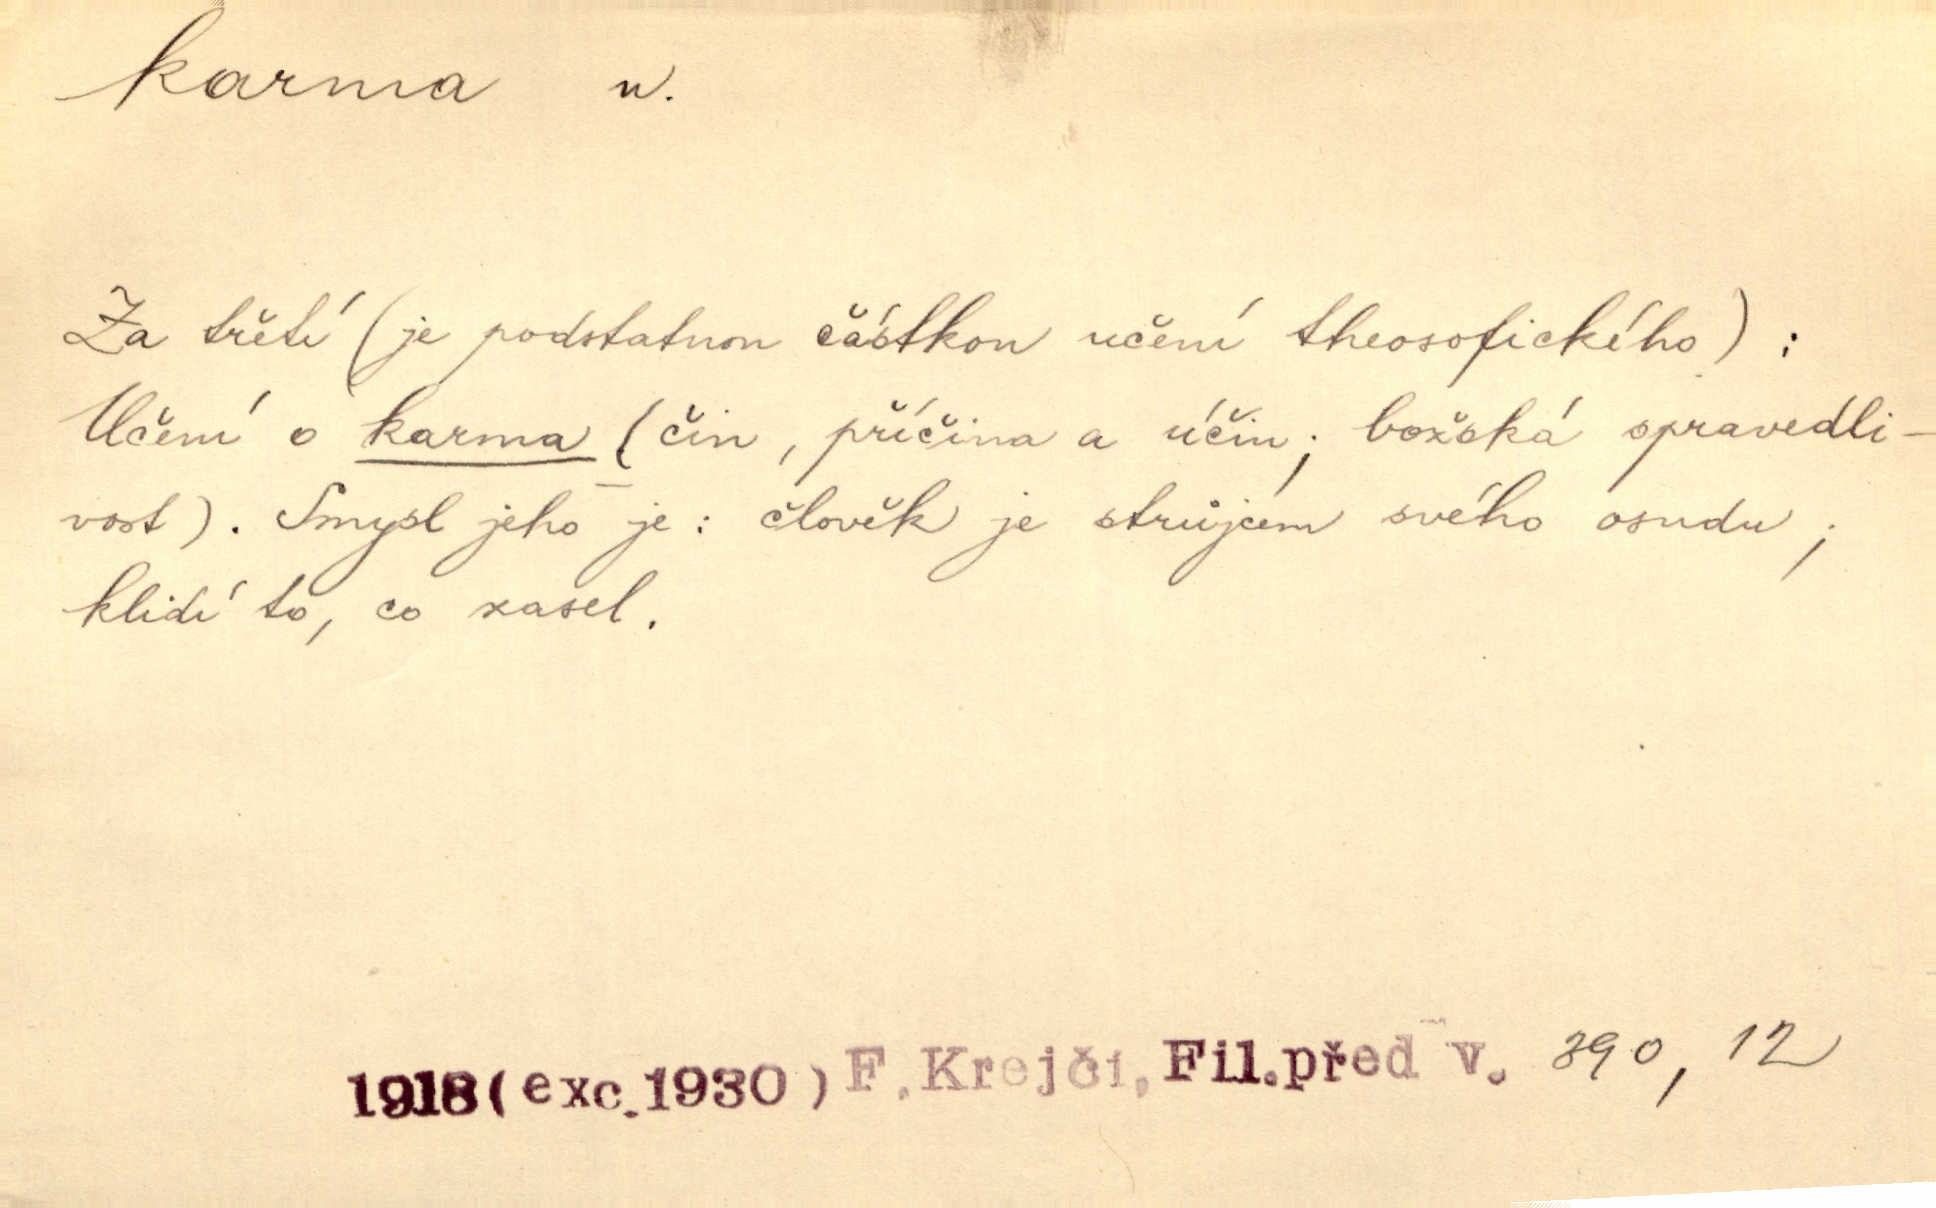 karma n.
Za třetí (je podstatnou částkou učení theosofického):
Učení o karma (čin, příčina a účin; božská spravedli-
vost). Smysl jeho je: člověk je strůjcem svého osudu;
klidí to, co zasel.
1918(exc.1930) F.Krejčí, Fil.před v. 390, 12